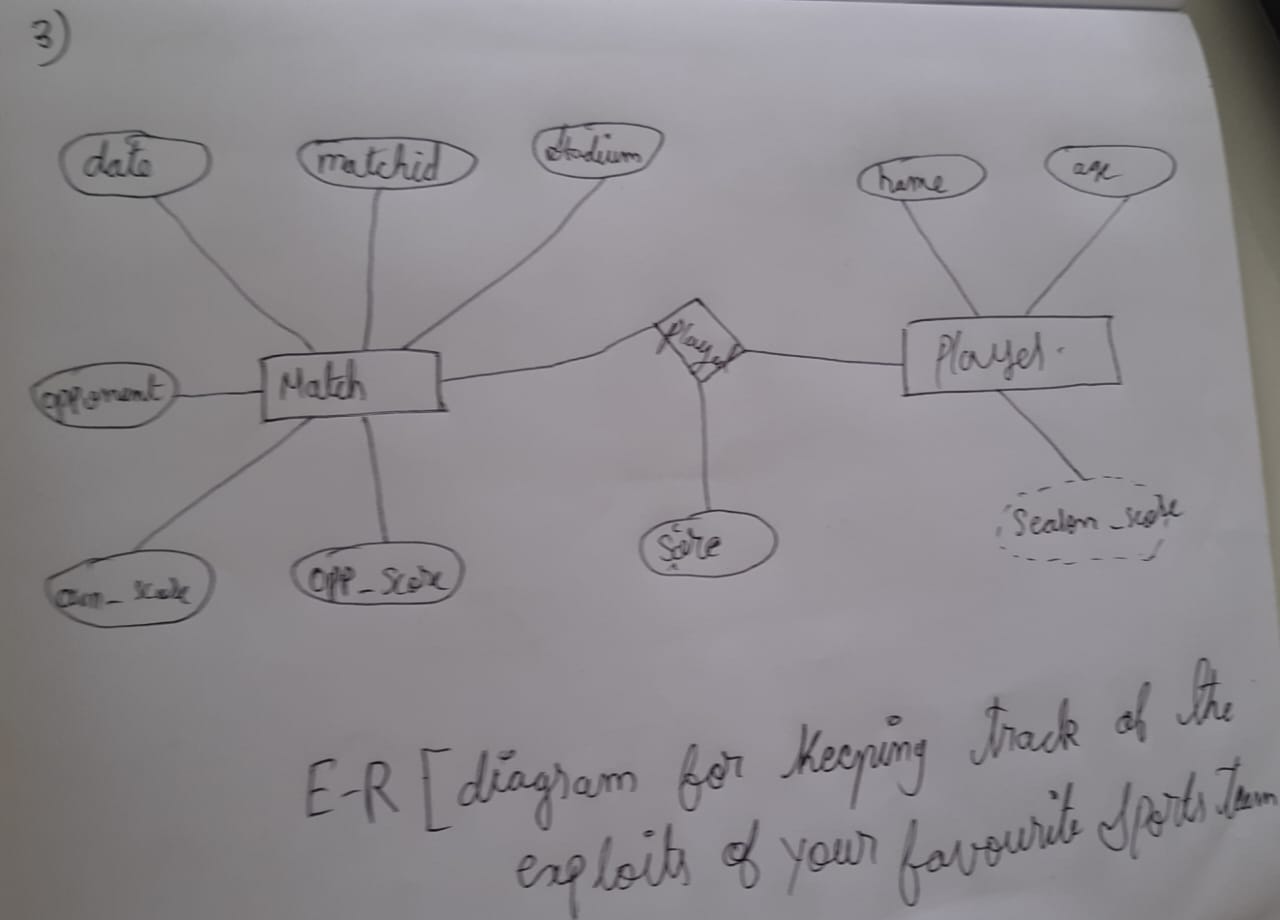 3)
date
matchid
stadium
name
age
opponent
Match
Played
Player.
own_score
opp_score
Score
Season_score
E-R [diagram for Keeping track of the
exploits of your favourite sports team